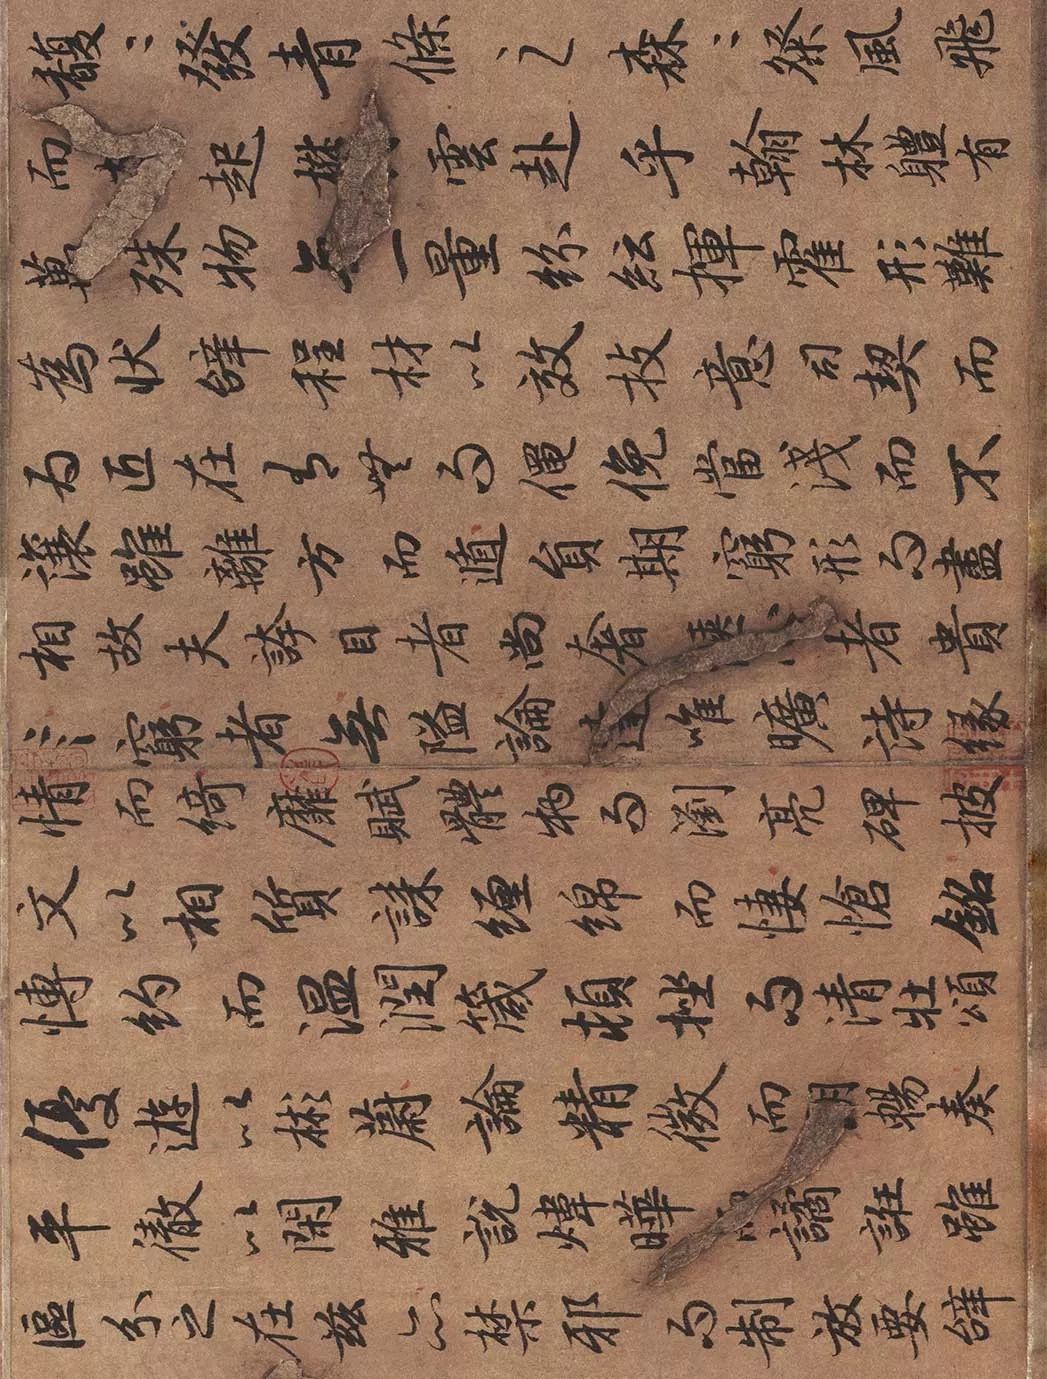 馥馥發青條之森森粲風飛
而起欝雲赴乎翰林體有
萬殊物無一量紛紜揮霍形難
為狀辭程材以效技意司契而
為匠在有無而僶俛當淺而不
讓雖離方而遁員期窮形而盡
相故夫誇目者尚奢者貴
言窮者無隘論達唯曠詩緣
情而綺靡賦體物而瀏亮碑披
文以相質誄纏綿而悽愴銘
博約而溫潤箴頓挫而清壯頌
優遊以彬蔚論精微而朗暢奏
平徹以閑雅說煒曄譎誑雖
區分之在茲亦禁邪而制放要辭